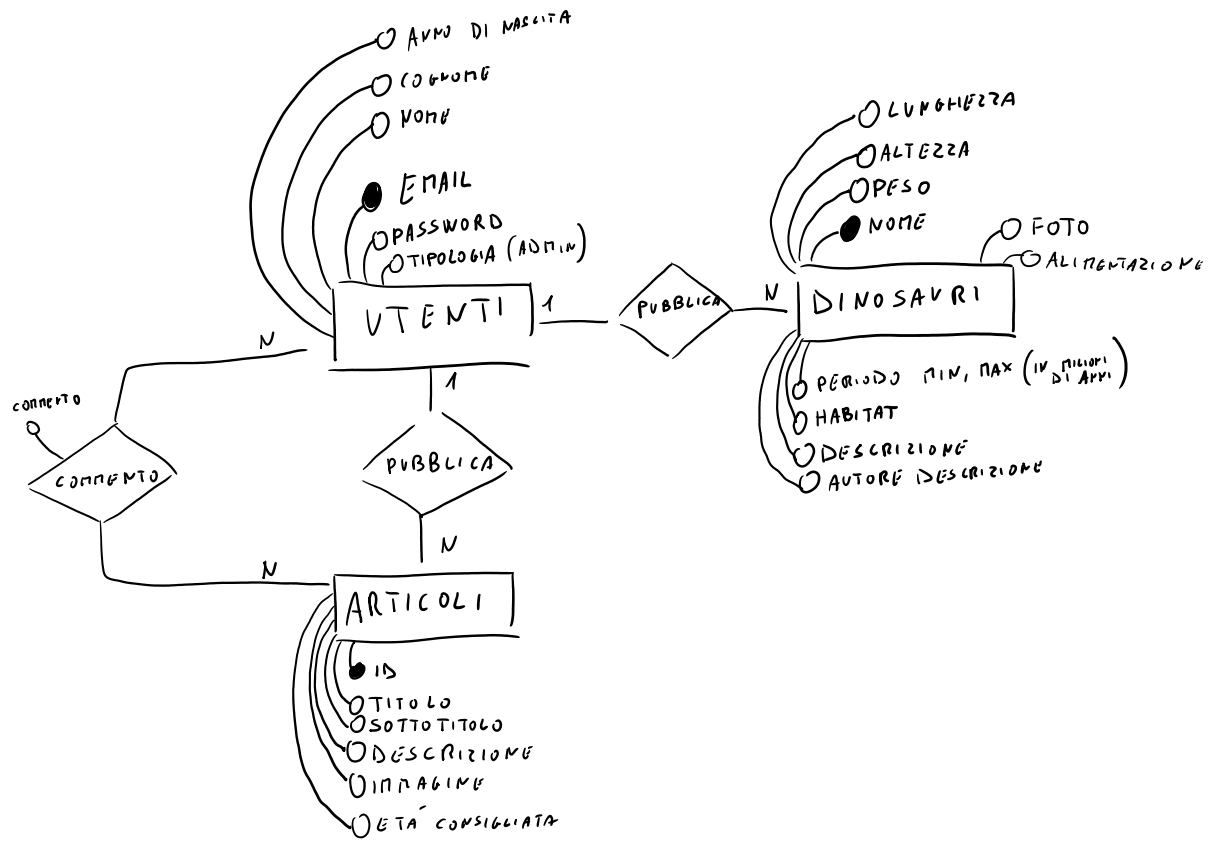 ANNO DI NASCITA
COGNOME
NOME
EMAIL
PASSWORD
TIPOLOGIA (ADMIN)
UTENTI
1
PUBBLICA
N
DINOSAURI
LUNGHEZZA
ALTEZZA
PESO
NOME
FOTO
ALIMENTAZIONE
PERIODO MIN, MAX (IN MILIONI
DI ANNI)
HABITAT
DESCRIZIONE
AUTORE DESCRIZIONE
N
COMMENTO
COMMENTO
N
1
PUBBLICA
N
ARTICOLI
ID
TITOLO
SOTTOTITOLO
DESCRIZIONE
IMMAGINE
ETÀ CONSIGLIATA